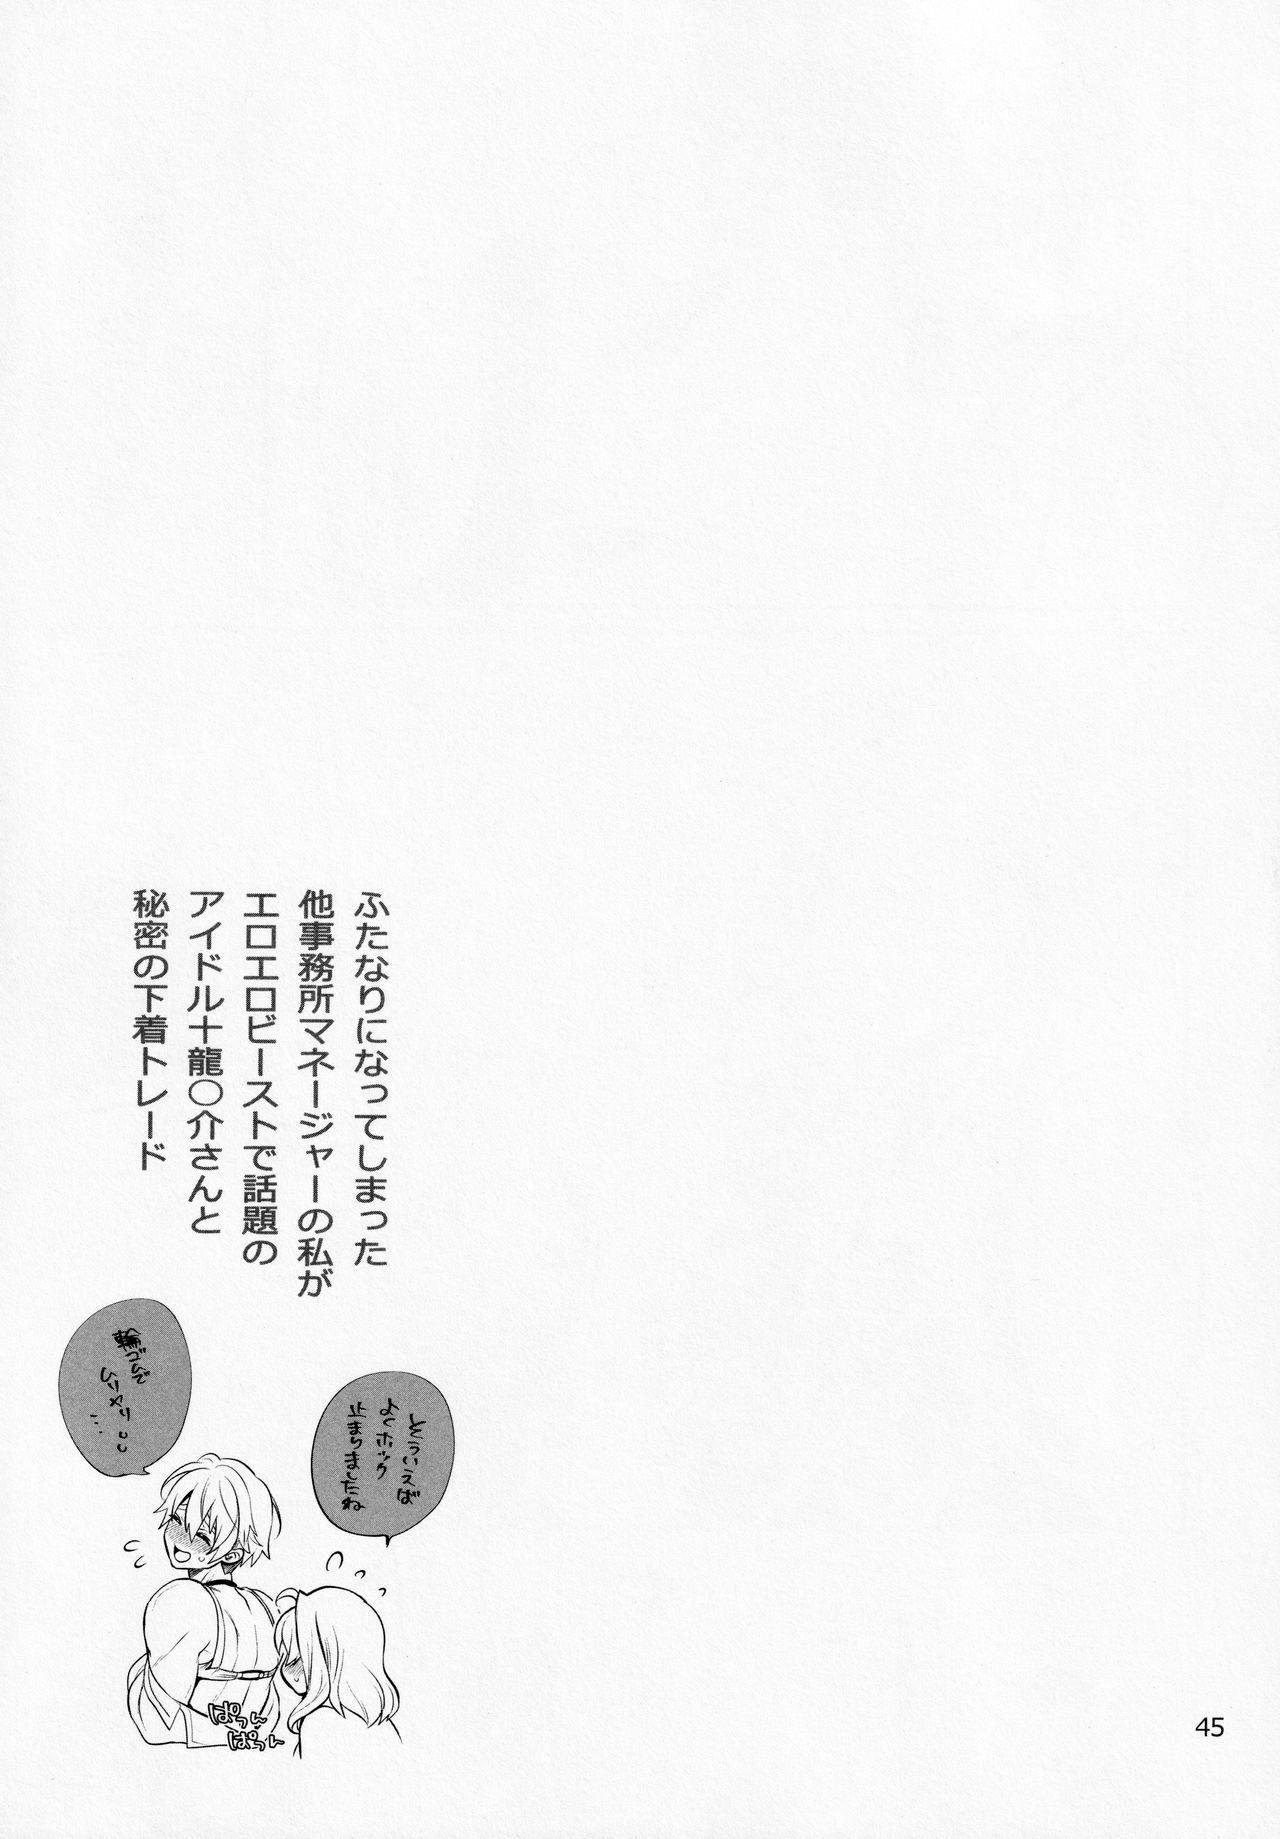 ふたなりになってしまった
他事務所マネージャーの私が
エロエロビーストで話題の
アイドル十龍〇介さんと
秘密の下着トレード
そういえば
よくホック
止まりましたね
輪ゴムで
ムリヤリ…
ぱつん
ぱつん
45